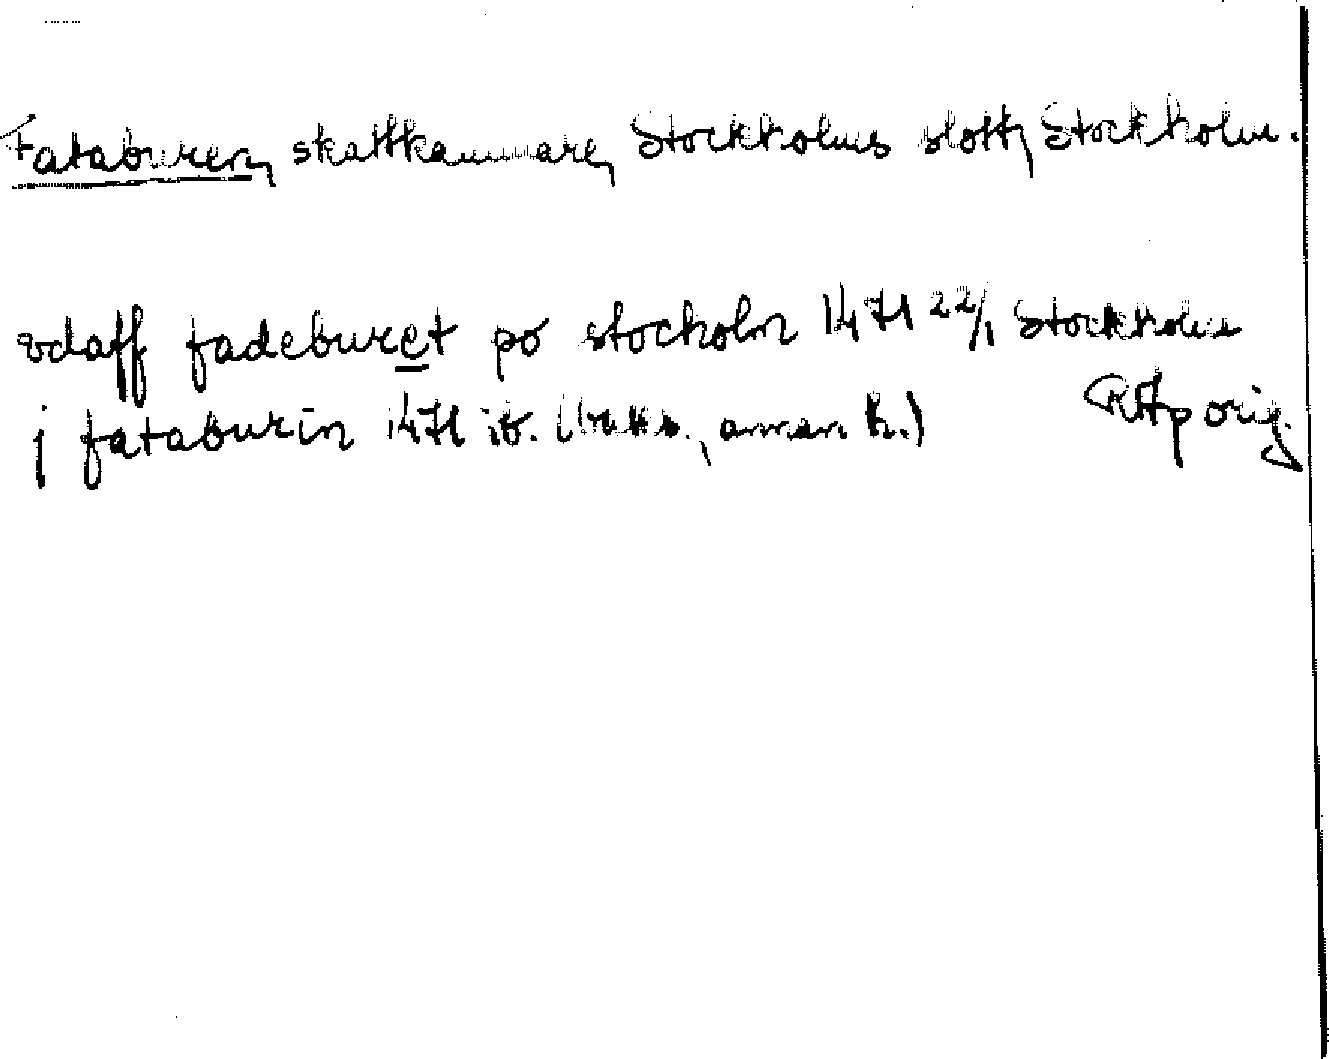 Fataburen, skattkammare, Stockholms slott, Stockholm.
vdaff fadeburet po stocholm 1471 22/1 Stockholm
j fataburin 1471 ib. annan h.) RAp orig.